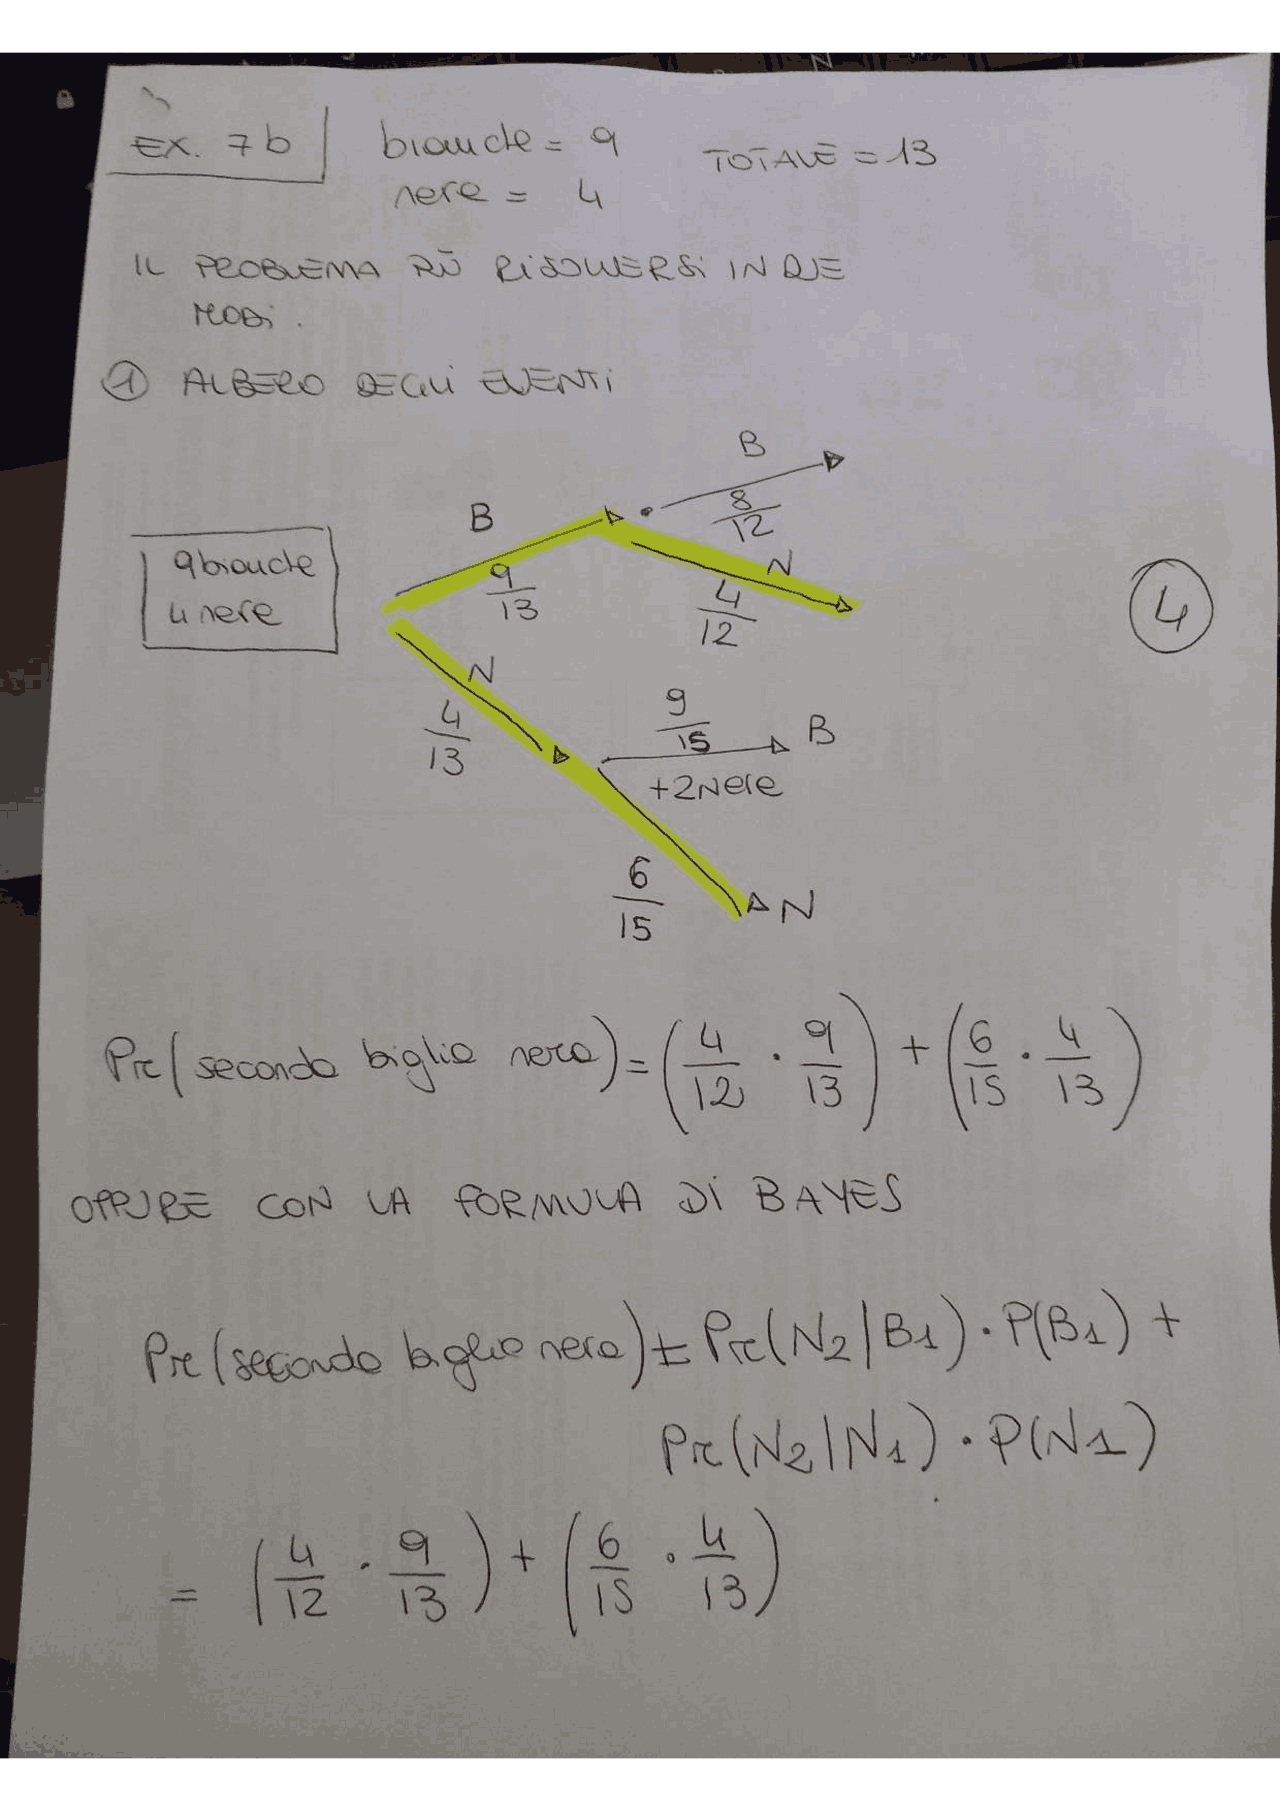 EX. 7b
bianche = 9
TOTALE = 13
nere = 4
IL PROBLEMA PUÒ RISOLVERSI IN DUE
MODI.
1 ALBERO DEGLI EVENTI
B
8/12
B
9/13
N
4/12
9 bianche
4 nere
4
N
4/13
9/15
B
+2Nere
6/15
N
Pr(seconda biglia nera) = (4/12 · 9/13) + (6/15 · 4/13)
OPPURE CON LA FORMULA DI BAYES
Pr(seconda biglia nera) = Pr(N2|B1) · P(B1) +
Pr(N2|N1) · P(N1)
= (4/12 · 9/13) + (6/15 · 4/13)